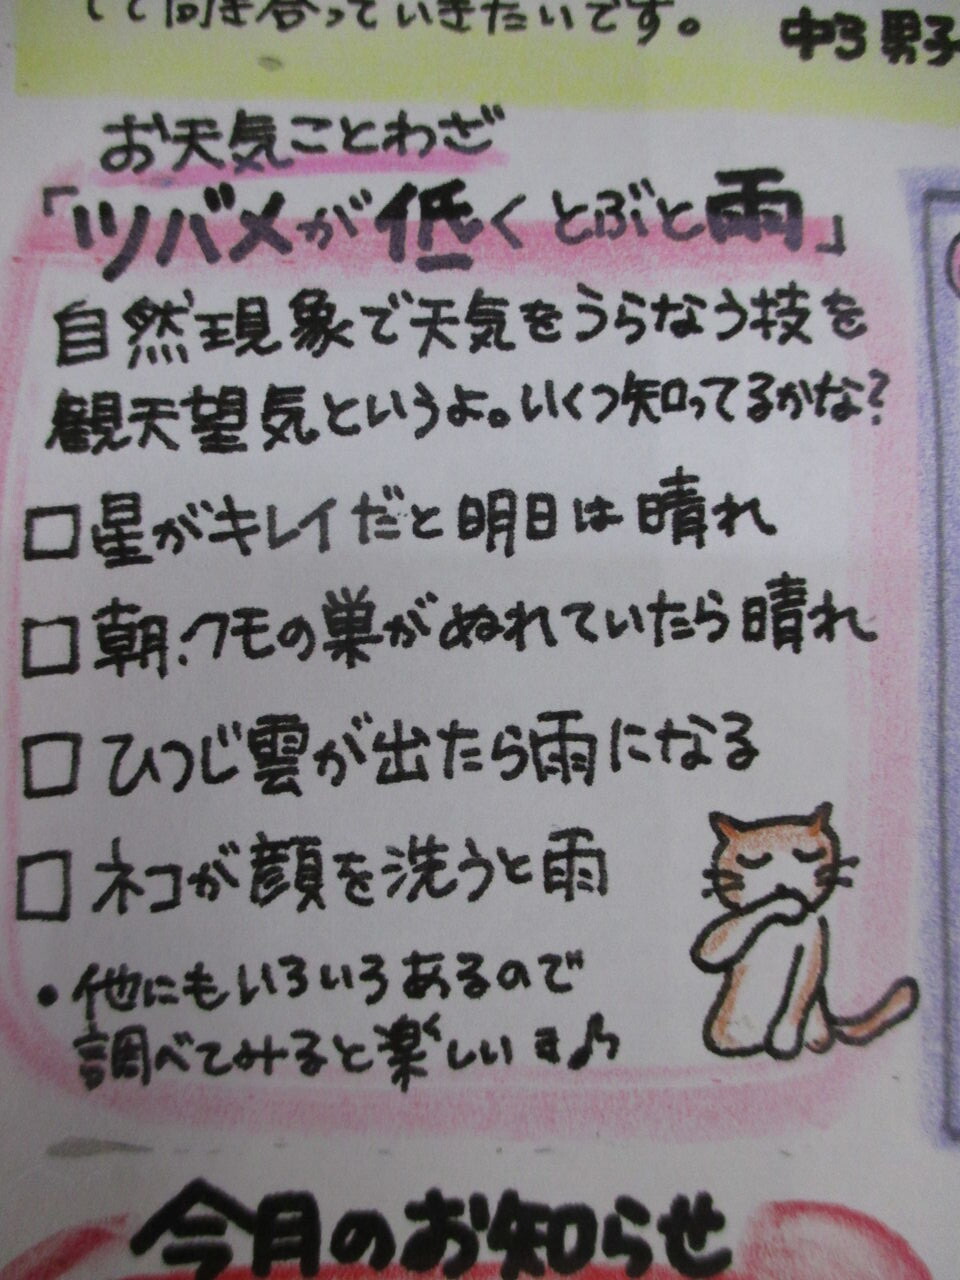 して向き合っていきたいです。
中3 男子
お天気ことわざ
「ツバメが低くとぶと雨」
自然現象で天気をうらなう技を
観天望気というよ。いくつ知ってるかな?
□星がキレイだと明日は晴れ
□朝、クモの巣がぬれていたら晴れ
□ひつじ雲が出たら雨になる
□ネコが顔を洗うと雨
・他にもいろいろあるので
調べてみると楽しいョ♪
今月のお知らせ